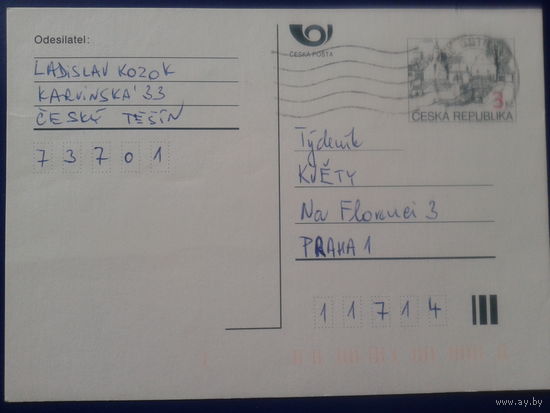 Odesilatel:
LADISLAV KOZOK
KARVINSKÁ 33
ČESKÝ TĚŠÍN
73701
ČESKÁ POŠTA
3
ČESKÁ REPUBLIKA
Týdeník
KVĚTY
Na Florenci 3
PRAHA 1
11714
www.ay.by